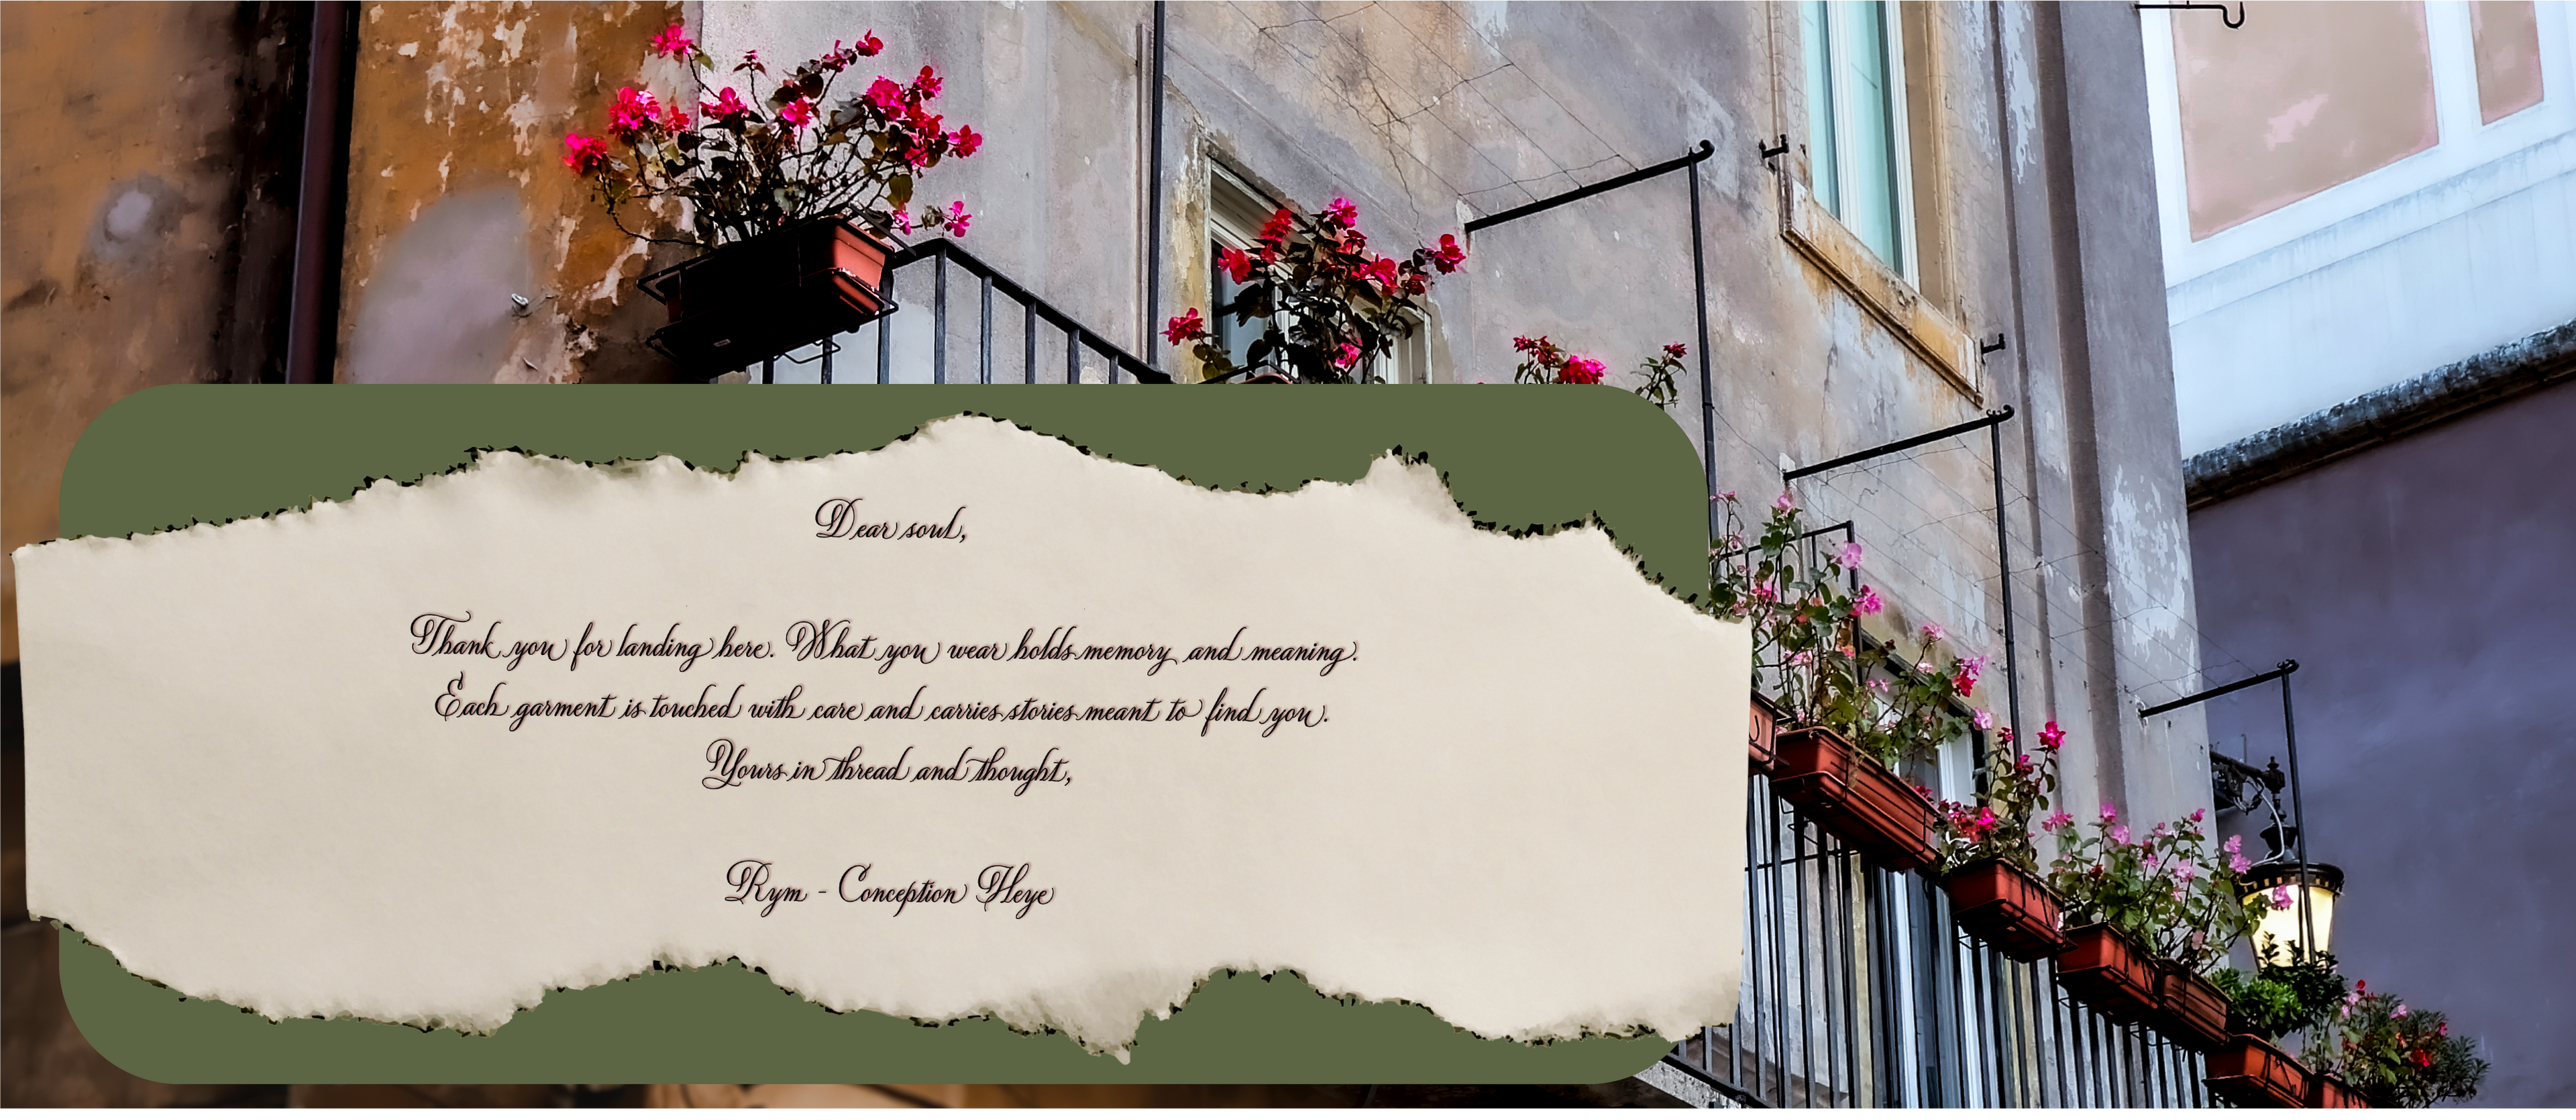 Dear soul,
Thank you for landing here. What you wear holds memory and meaning.
Each garment is touched with care and carries stories meant to find you.
Yours in thread and thought,
Rym - Conception Heye